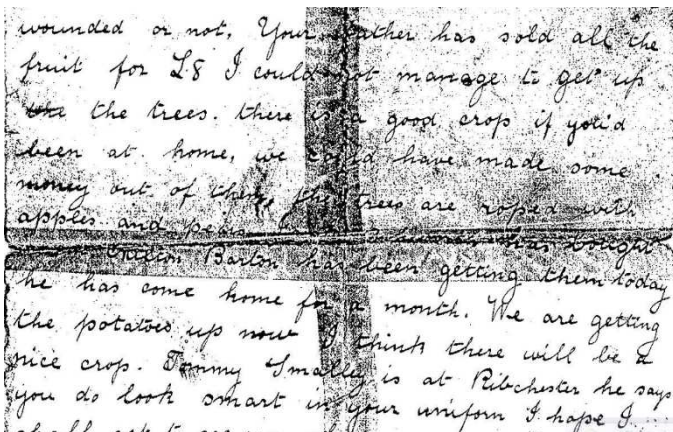 wounded or not, Your father has sold all the
fruit for £8 I could not manage to get up
the the trees. there is a good crop if you'd
been at home, we could have made some
money out of them, the trees are roped with
apples and pears has bought
Barton has been getting them today
he has come home for a month. We are getting
the potatoes up now I think there will be a
nice crop. Tommy Smalley is at Ribchester he says
you do look smart in your uniform I hope I
shall